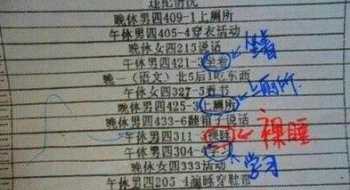 违纪情况
晚休男四409-1上厕所
午休男四405-4穿衣活动
晚休女四215说话
午休男四421-3坐着 坐着
晚一(语文)北5后1吃东西
午休女四327-5看书
晚休男四425-3上厕所 上厕所
晚休男四433-6睡铺子说话
午休男四311 裸睡
午休男四304 学习
晚休女四333活动
午休男四205-4